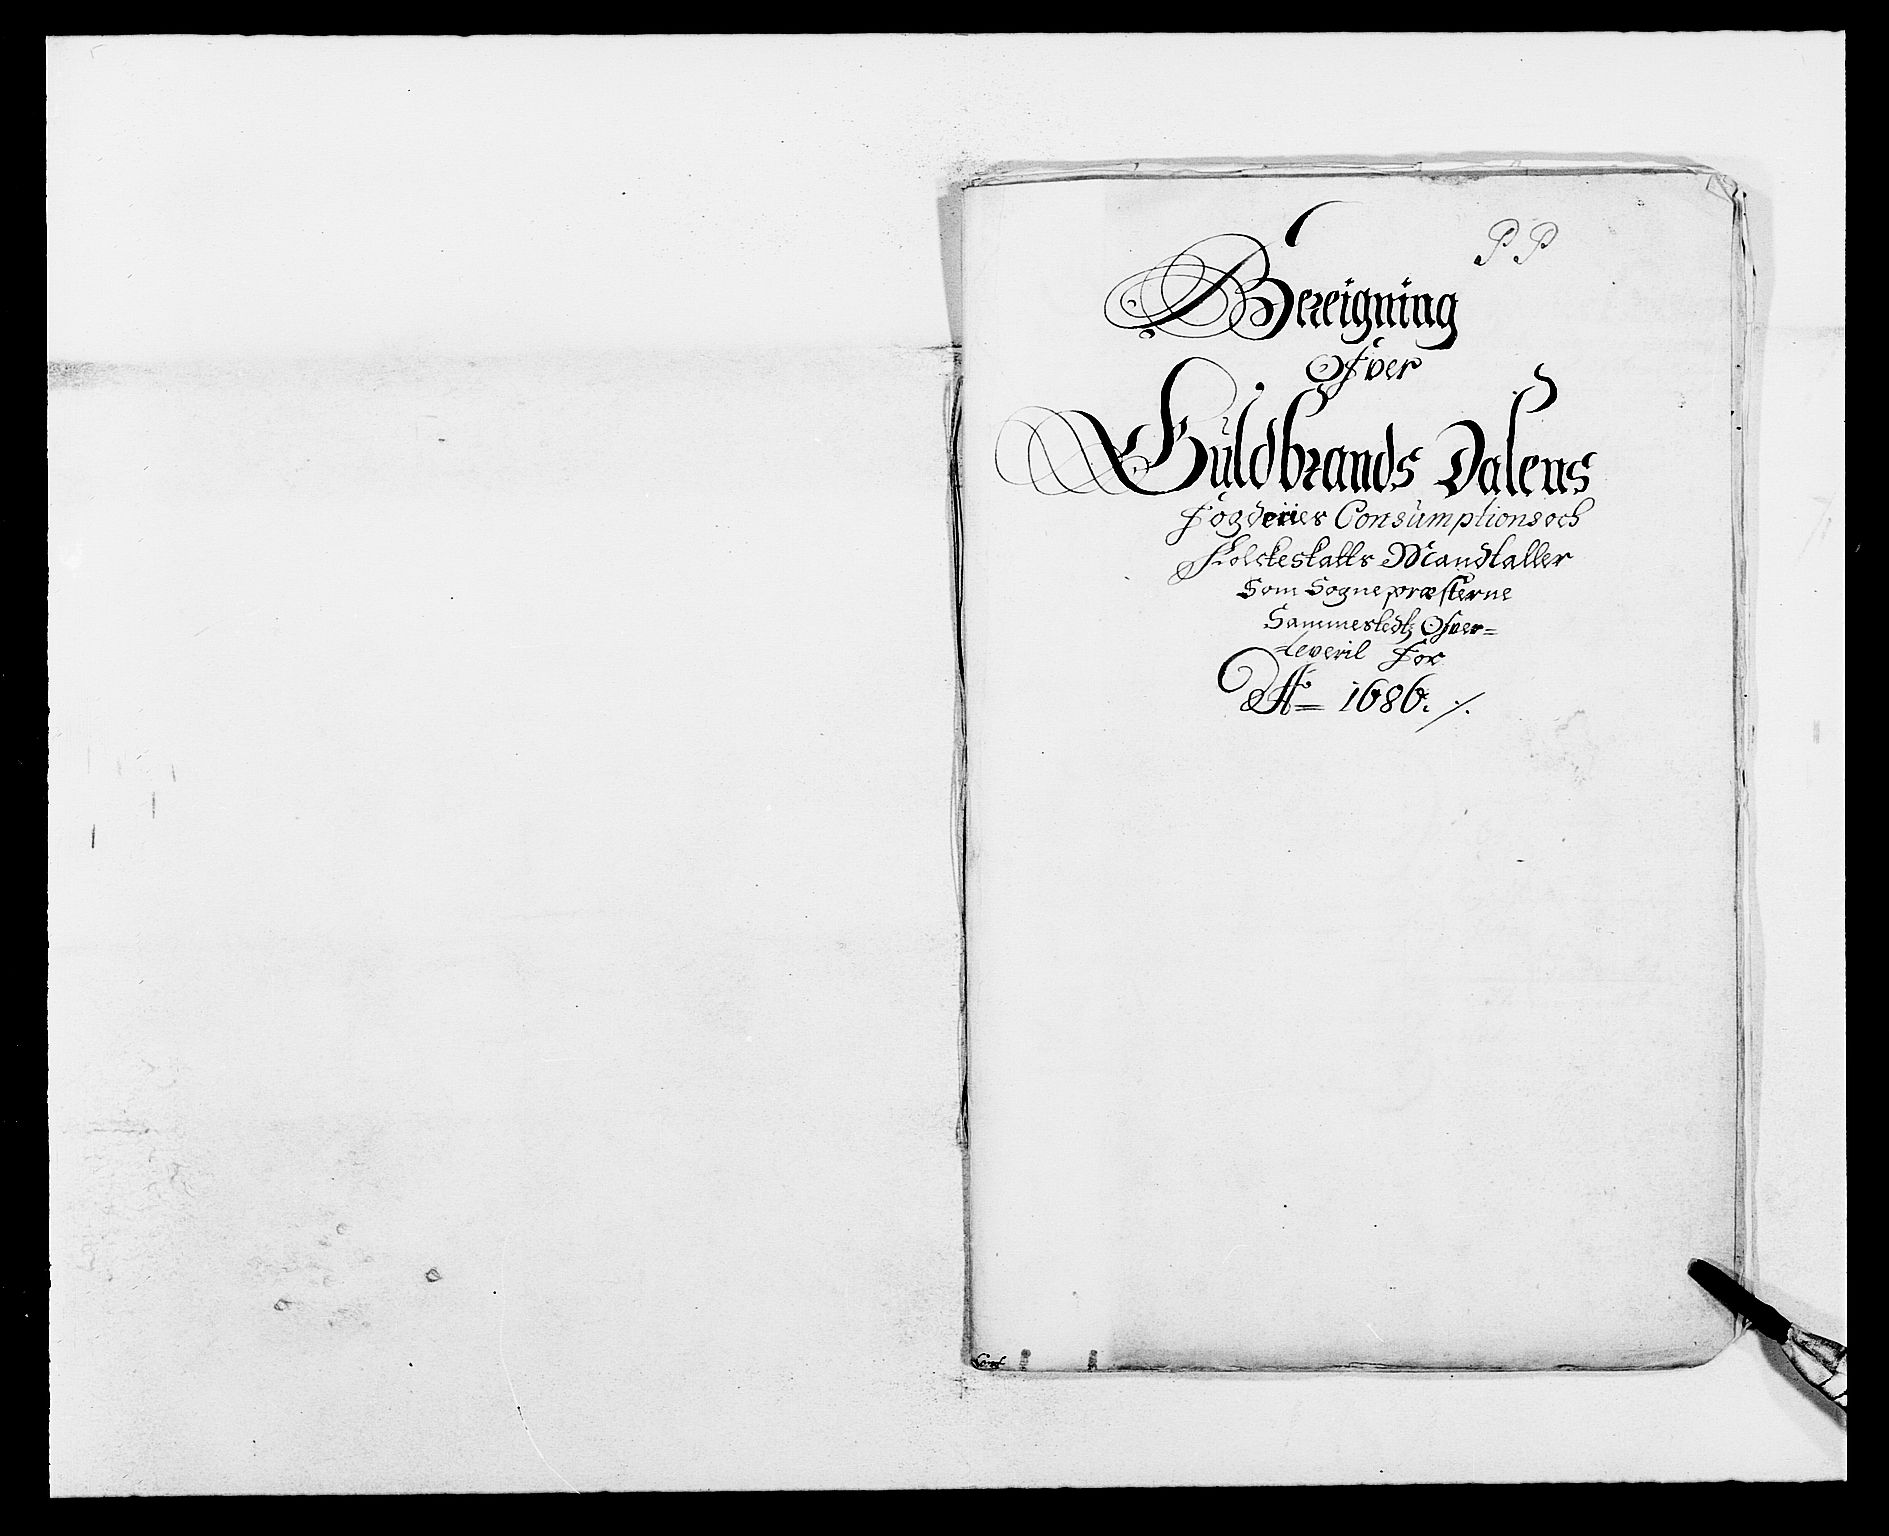 P P
Bereigning
Ofver
Guldbrands Dalens
Fogderies Consumptions och
Folckeskatts Mandtaller
Som Sognepræsterne
Sammestedtz Ofver=
leveril for
Aº 1686. ./.